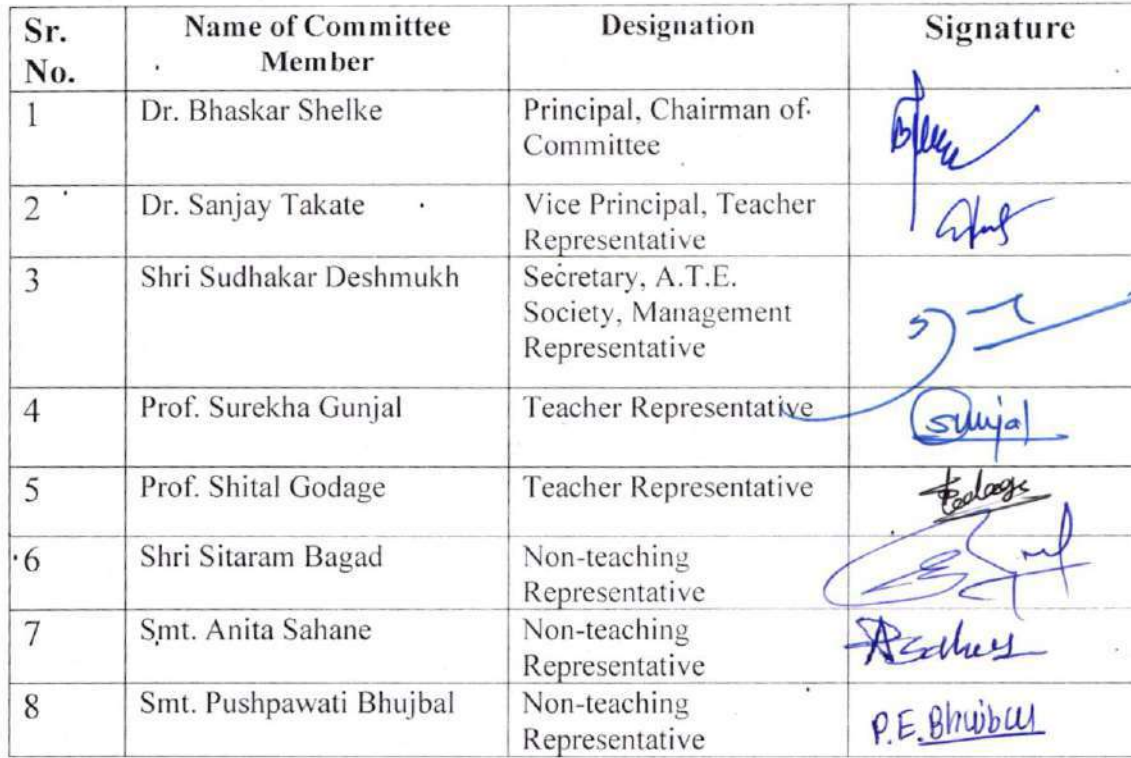 Sr. No. Name of Committee Member Designation Signature
1 Dr. Bhaskar Shelke Principal, Chairman of Committee
2 Dr. Sanjay Takate Vice Principal, Teacher Representative
3 Shri Sudhakar Deshmukh Secretary, A.T.E. Society, Management Representative
4 Prof. Surekha Gunjal Teacher Representative
5 Prof. Shital Godage Teacher Representative
6 Shri Sitaram Bagad Non-teaching Representative
7 Smt. Anita Sahane Non-teaching Representative
8 Smt. Pushpawati Bhujbal Non-teaching Representative P.E. Bhujbal